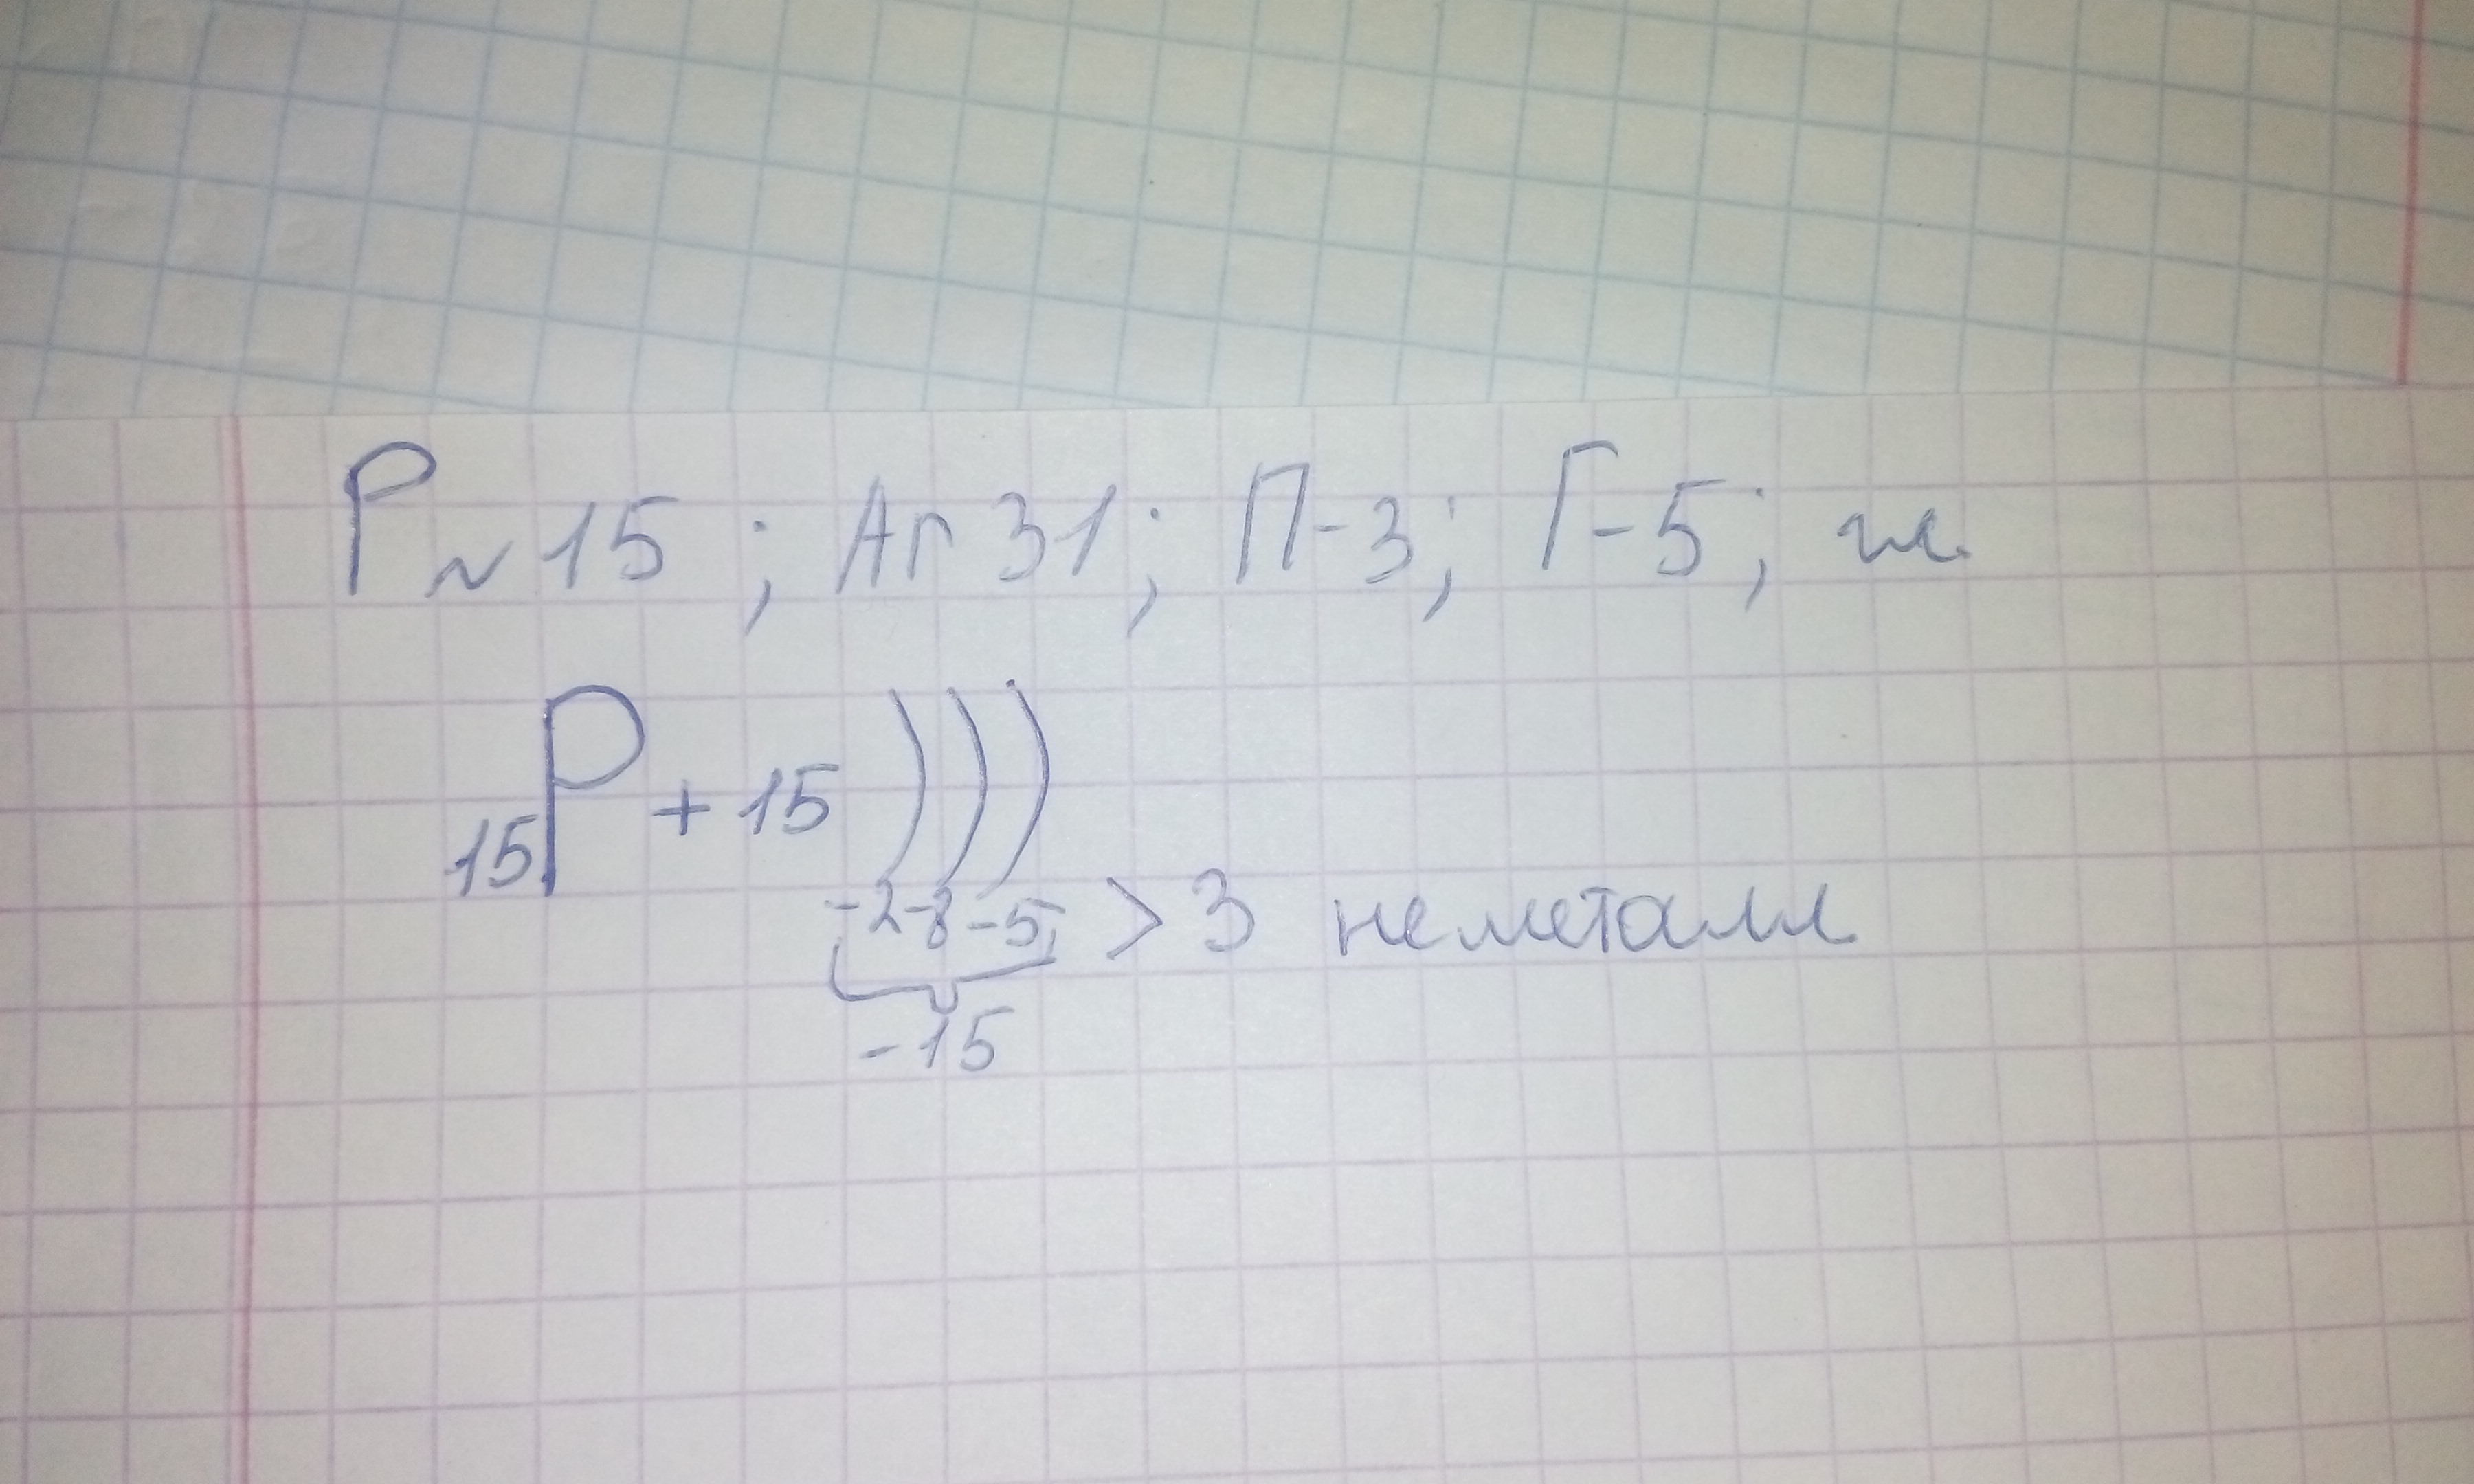 P № 15; Ar 31; П-3; Г-5; м
15P +15 )))
-2-8-5 > 3 неметалл
-15